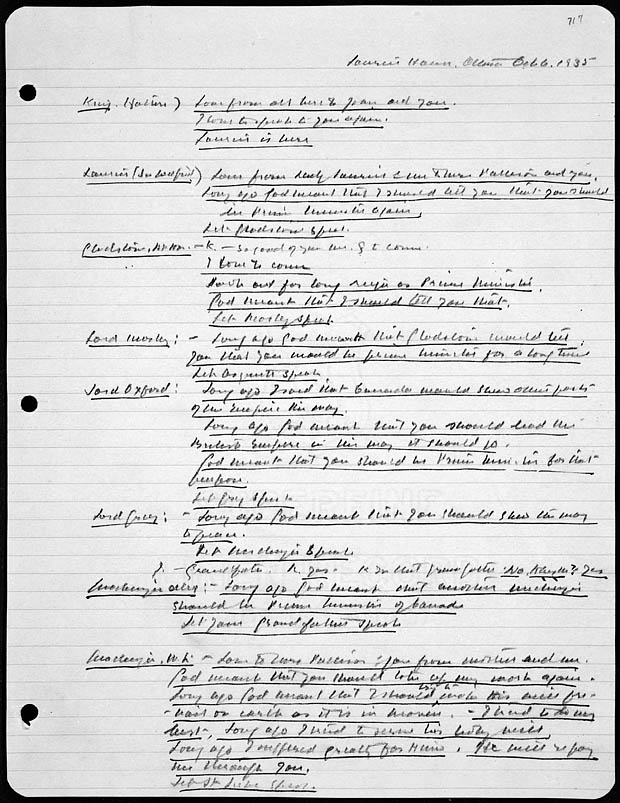 717
Laurier House, Ottawa Oct 6. 1935
King. (Father) Love from all here to Joan and you.
I love to speak to you again.
Laurier is here
Laurier (Sir Wilfrid) Love from Lady Laurier & me to Mrs Patteson and you.
Long ago God meant that I should tell you that you should
be Prime Minister again.
Let Gladstone speak.
Gladstone, - K. - So good of you Mr. G to come.
I love to come
God meant that I should tell you that.
Let Morley speak
Lord Morley: - Long ago God meant that Gladstone should tell
you that you would be prime minister for a long time
Let Asquith speak
Lord Oxford: Long ago I said that Canada would show other parts
of the Empire the way.
Long ago God meant that you should lead the
British Empire in the way it should go.
God meant that you should be Prime Minister for that
purpose.
Let Grey speak
Lord Grey: - Long ago God meant that you should show the way
to peace.
Let Mackenzie speak
Grandfather K. yes -
Mackenzie Alex: - Long ago God meant that another Mackenzie
should be Prime Minister of Canada
Let your Grandfather speak
Mackenzie, W.L. - Love to Mrs Patteson & you from mother and me.
God meant that you should take up my work again.
Long ago God meant that I should make his will pre-
vail on earth as it is in heaven. - I tried to do my
best. Long ago I tried to serve his holy will
Long ago I suffered greatly for Him. He will repay
me through you.
Let St Luke speak.